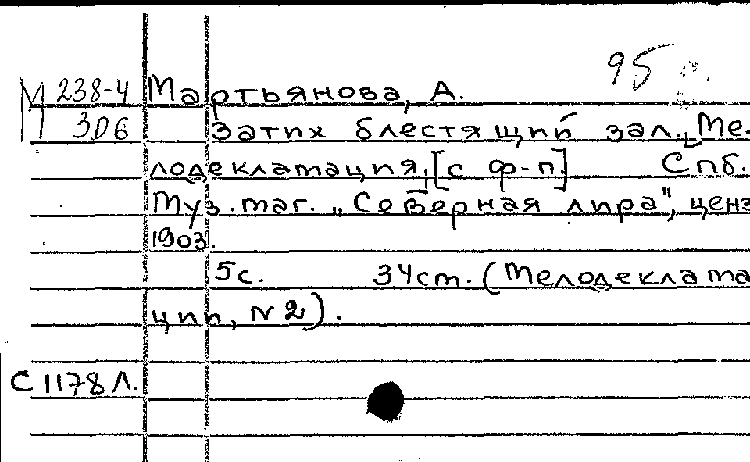 95
М 238-4 Мартьянова, А.
306 Затих блестящий зал. Ме-
лодекламация, [с ф-п] Спб.
Муз. маг. „Северная лира", ценз
1903.
5с. 34ст. (Мелодеклама
ции, №2).
С 1178 Л.